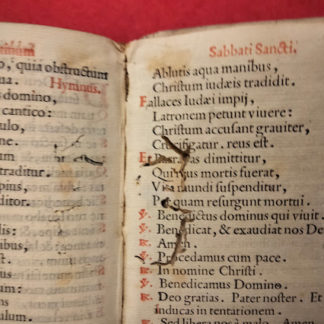 o, quia obstructum
na. Hymnus.
domino,
cantico:
ulo,
ne:
raditur.
ne,
pius,
ditor.
lis:
nibus,
Sabbati Sancti.
Ablutis aqua manibus,
Christum iudæis tradidit.
Fallaces Iudæi impij,
Latronem petunt viuere:
Christum accusant grauiter,
Crucifigatur. reus est.
Et dimittitur,
Qui mortis fuerat,
Vita mundi suspenditur,
Per quam resurgunt mortui.
℣. Benedictus dominus qui viuit.
℣. Benedicat, & exaudiat nos De
℟. Amen.
℣. Procedamus cum pace.
℟. In nomine Christi.
℣. Benedicamus Domino.
℟. Deo gratias. Pater noster. Et
inducas in tentationem.
Sed libera nos a malo. Amen.